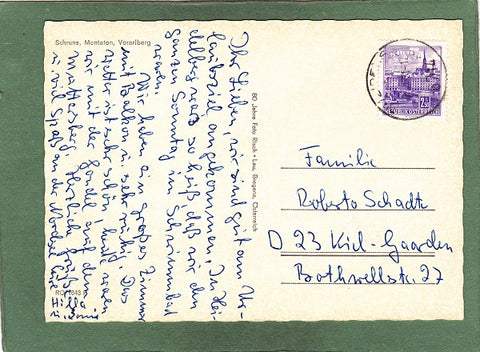 Schruns, Montafon, Vorarlberg
Ihr Lieben, wir sind gut am Ur-
laubsziel angekommen. In Hei-
delberg war's so heiß daß wir den
ganzen Sonntag im Schwimmbad
waren.
Wir haben ein großes Zimmer
mit Balkon u. sehr ruhig. Das
Wetter ist sehr schön, heute waren
wir mit der Gondel auf dem
Herzliche Grüße
u. viel Spaß an der Nordsee Eure
Hilla
80 Jahre Foto Risch-Lau, Bregenz, Österreich
2
REPUBLIK ÖSTERREICH
Familie
Roberto Schadte
D 23 Kiel-Gaarden
Bothwellstr. 27